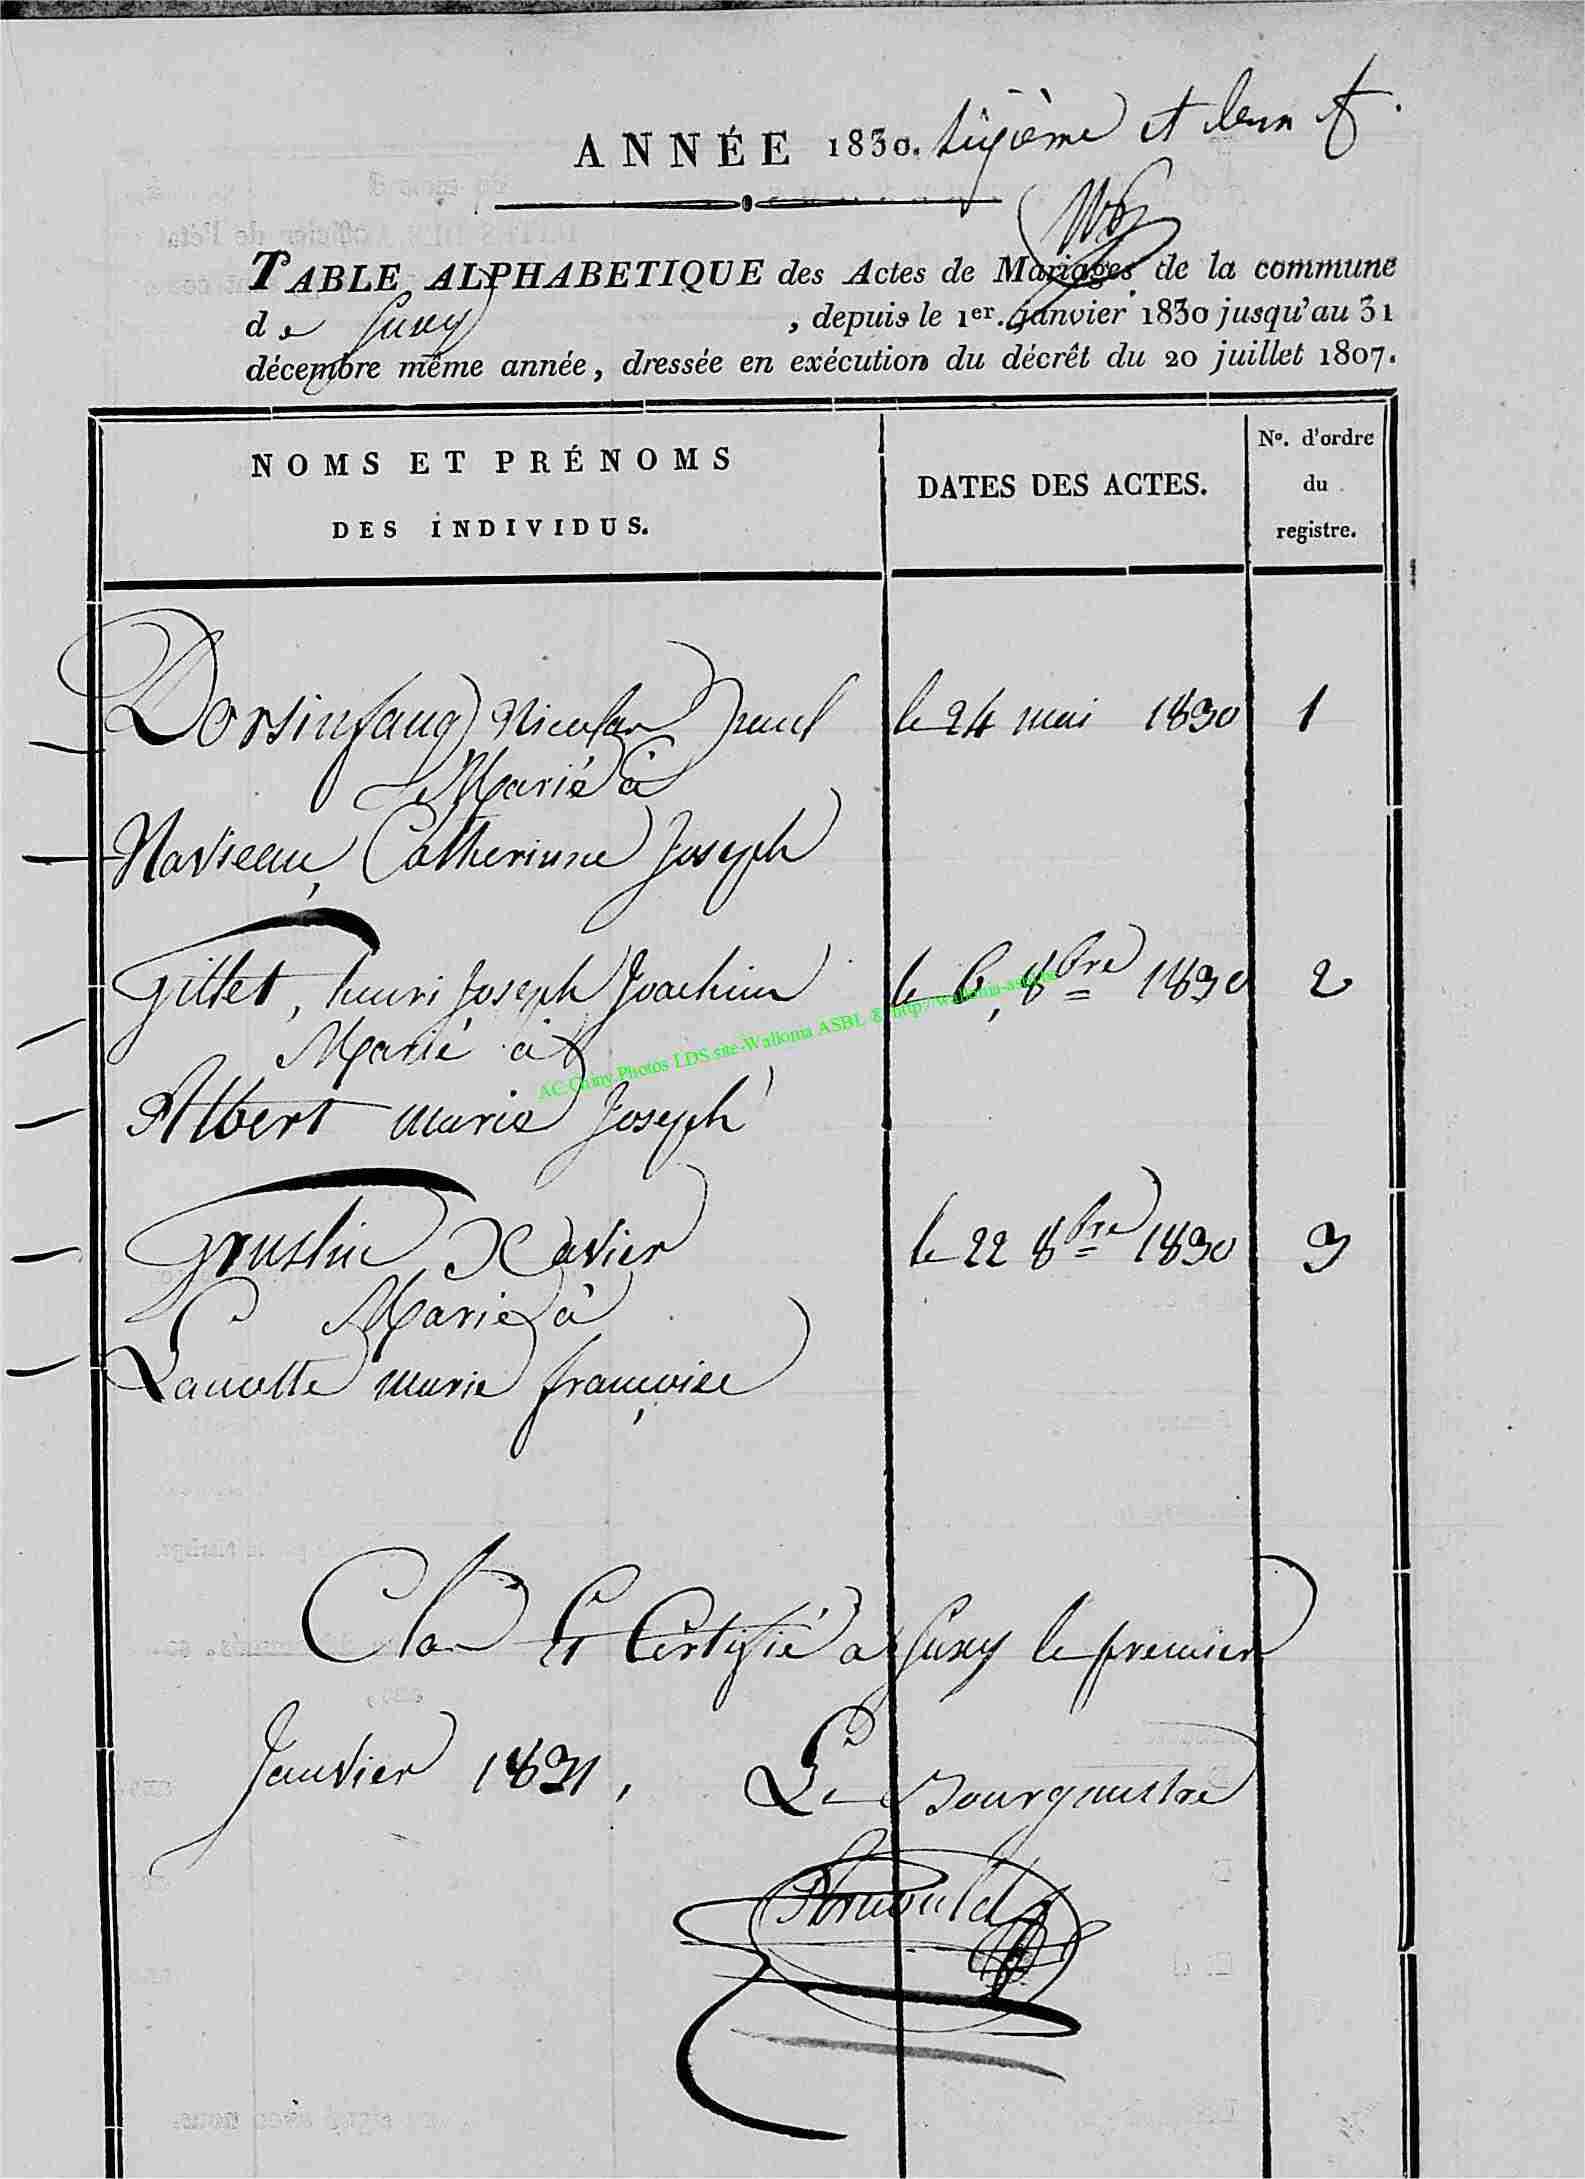 ANNÉE 1830. sixième et dern f.
TABLE ALPHABETIQUE des Actes de Mariages de la commune
de Suxy, depuis le 1er. janvier 1830 jusqu'au 31
décembre même année, dressée en exécution du décrêt du 20 juillet 1807.
NOMS ET PRÉNOMS
DES INDIVIDUS.
DATES DES ACTES.
No. d'ordre
du
registre.
Dorsinfang Nicolas Paul le 24 mai 1830 1
Marié à
Naviaux, Catherinne Joseph
Gillet, henri Joseph Joachim le 6, 8bre 1830 2
Marié à
Albert marie Joseph
Gruslin Xavier le 22 8bre 1830 3
Marié à
Lamotte marie françoise
Clos Et Certifié a Suxy le premier
Janvier 1831, Le Bourgmestre
AC-Chiny Photos LDS site-Wallonia ASBL & http://wallonia-asbl.be